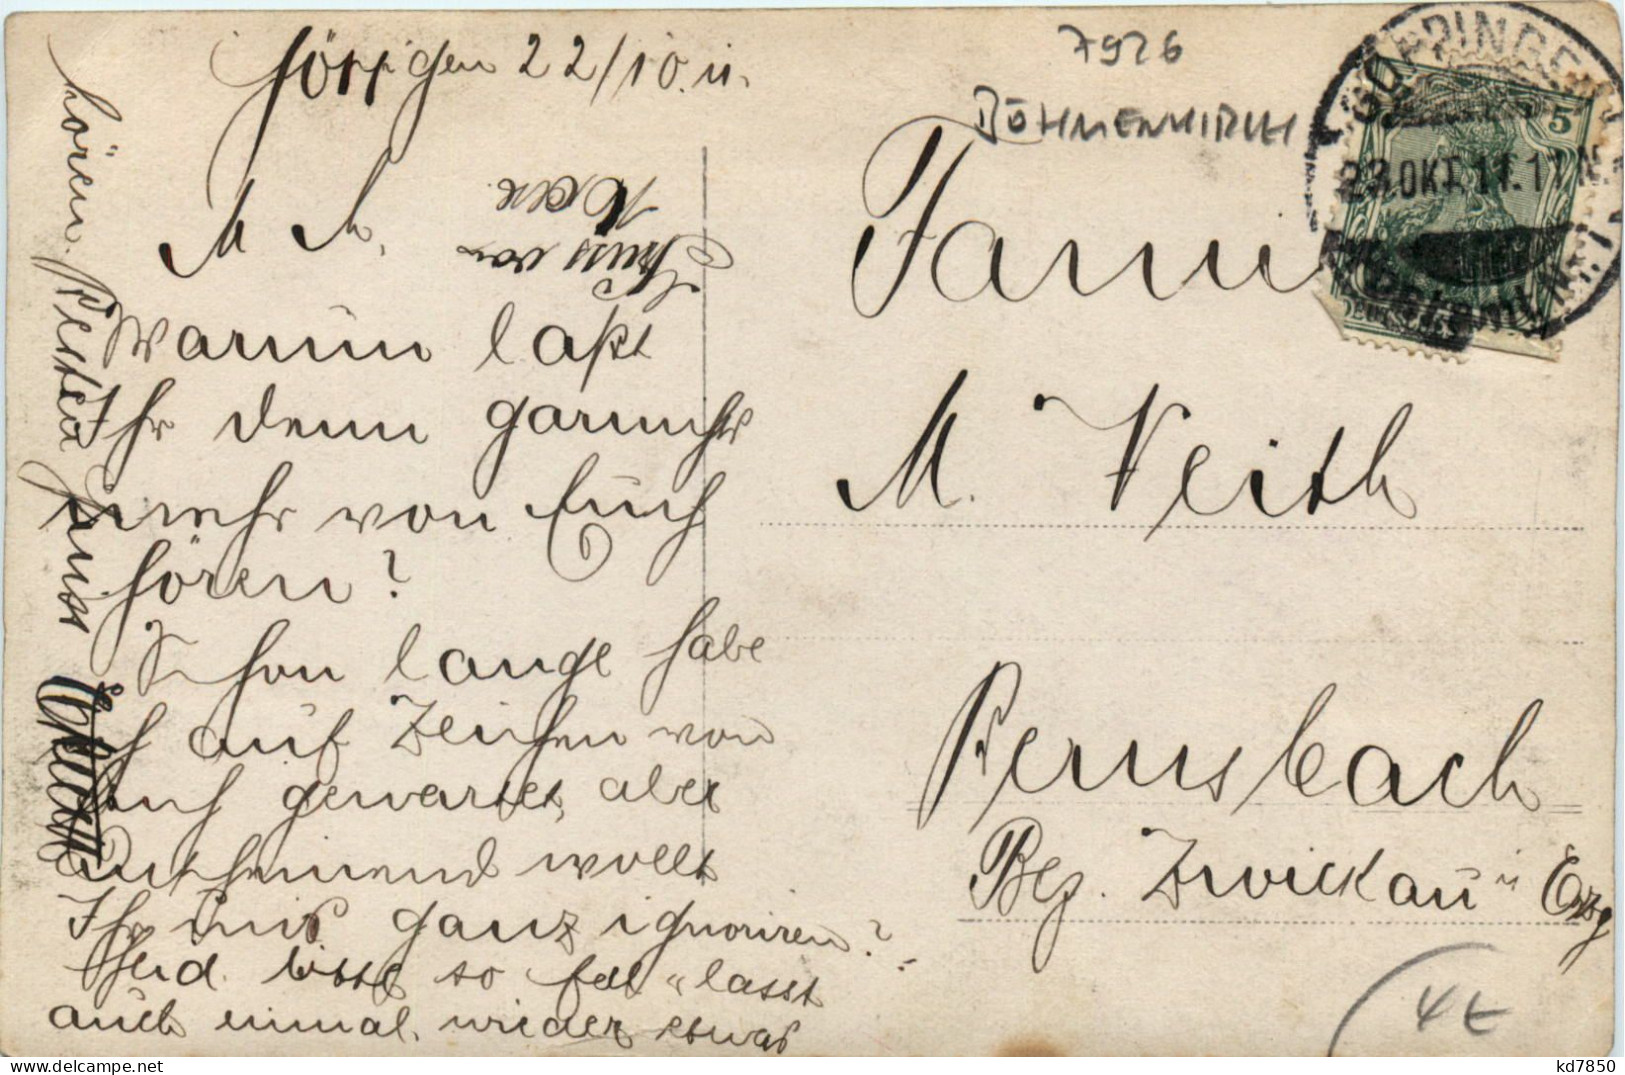 Göppingen 22/10.11.
M. L.
Gruss von
Warum laßt
Ihr denn garnichts
mehr von Euch
hören?
Schon lange habe
ich auf Zeichen von
Euch gewartet, aber
anscheinend wollt
Ihr uns ganz ignoriren?
Seid bitte so gut u. lasst
auch einmal wieder etwas
hören.
7926
BÖHMENKIRCH
Familie
M. Veith
Bernsbach
Bez. Zwickau i/ Erzg
GÖPPINGEN
23.OKT.11.11
5
4t
kd7850